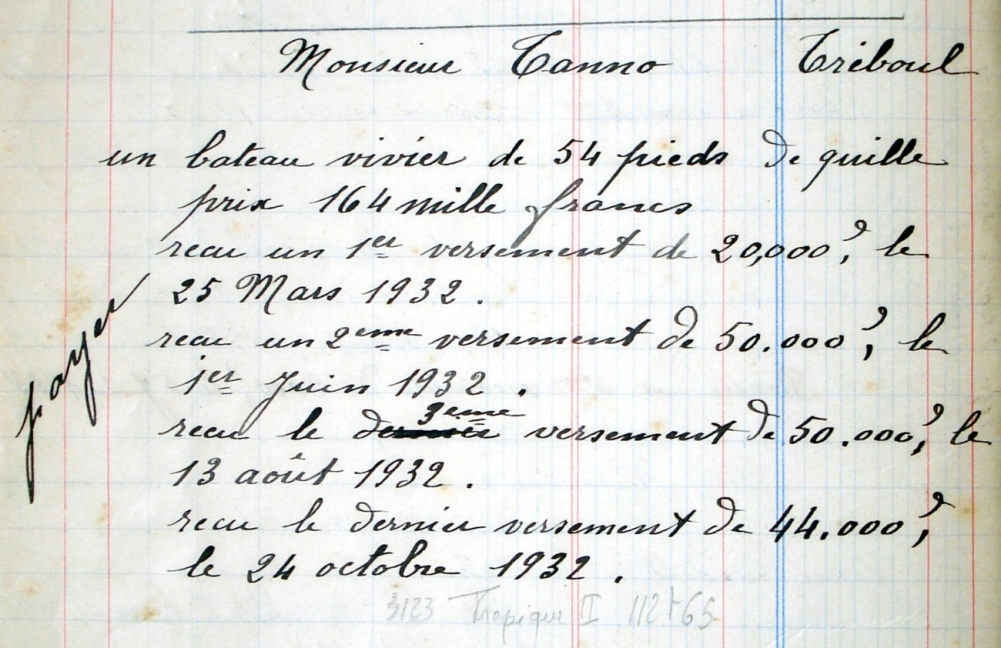 Monsieur Tanno Tréboul
un bateau vivier de 54 pieds de quille
prix 164 mille francs
recu un 1er versement de 20,000 f, le
25 Mars 1932.
recu un 2eme versement de 50.000 f, le
1er Juin 1932.
3eme
recu le dernier versement de 50.000 f, le
13 août 1932.
recu le dernier versement de 44.000 f,
le 24 octobre 1932.
payer
3123 Tropique II 112t65